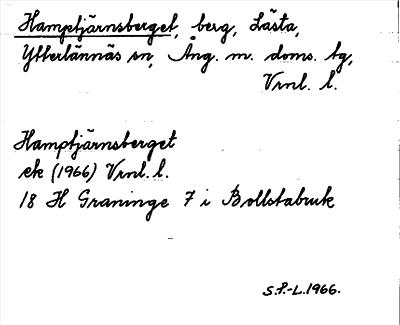 Hamptjärnsberget, berg, Lästa,
Ytterlännäs sn, Ång. m. doms. tg,
Vrnl. l.
Hamptjärnsberget
ek (1966) Vrnl. l.
18 H Graninge 7 i Bollstabruk
S.P.-L. 1966.